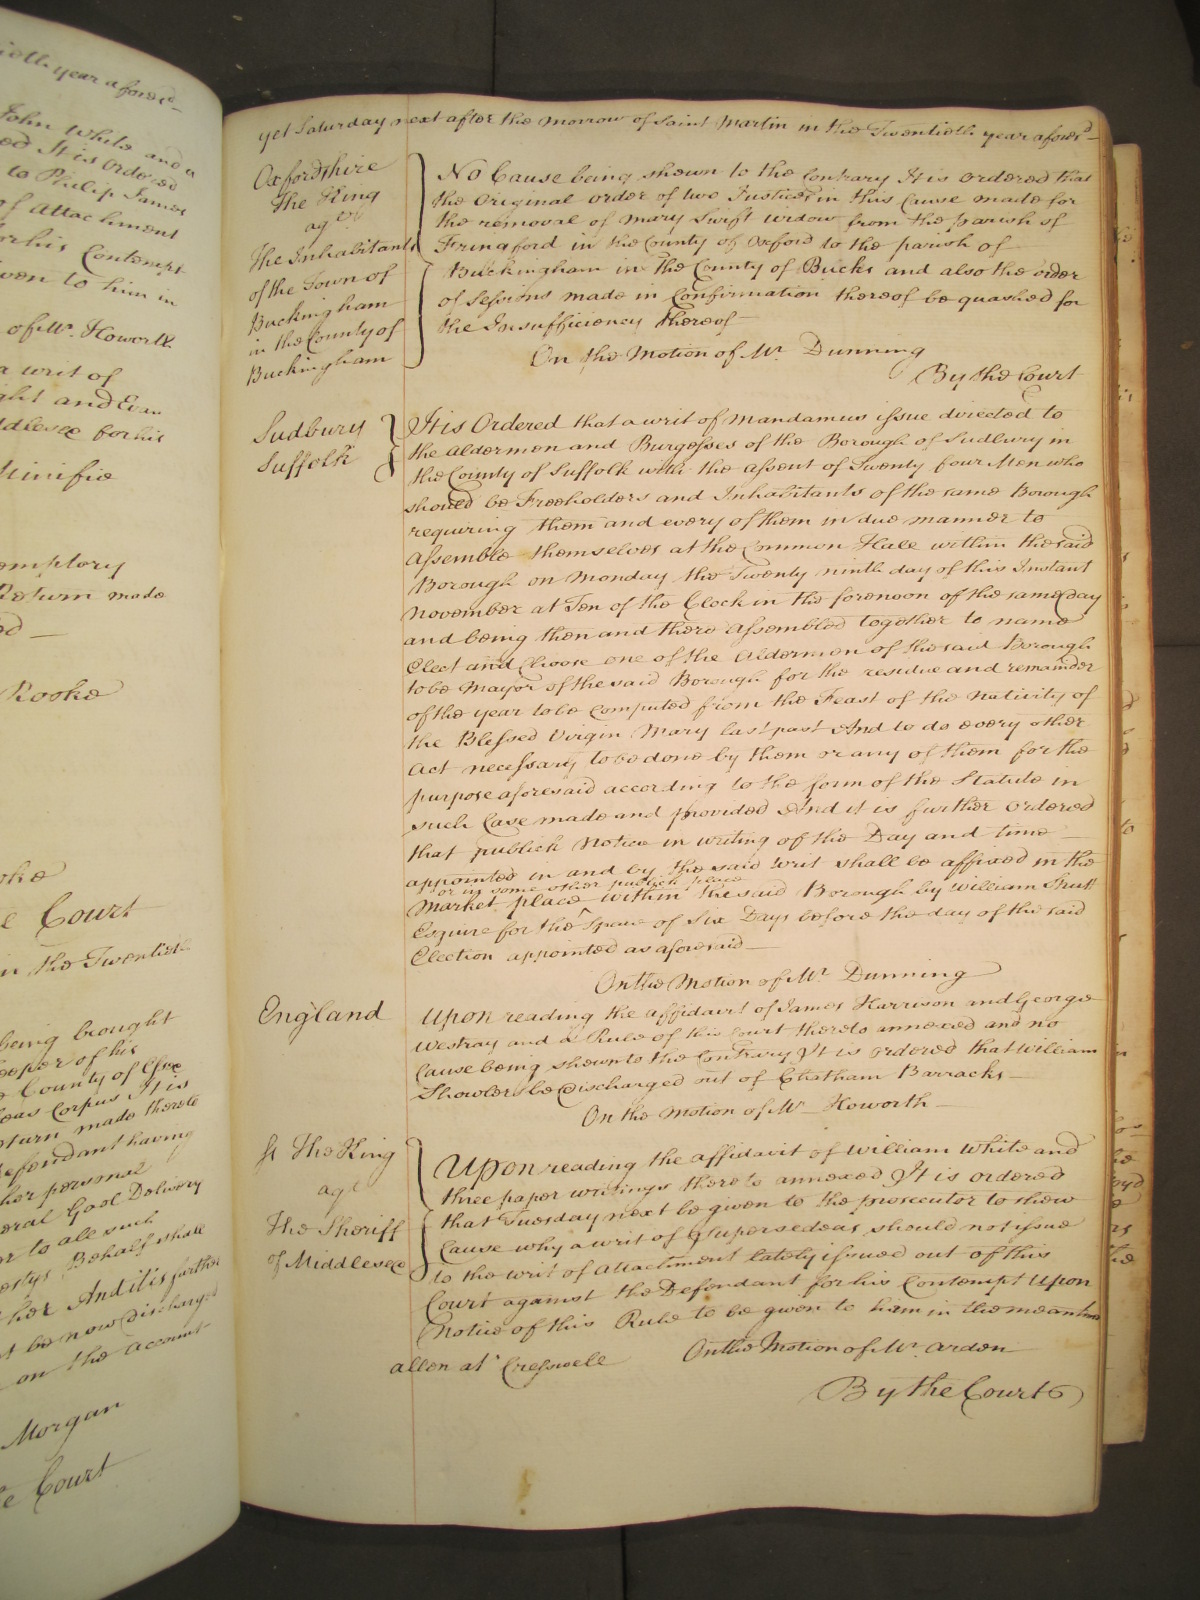 ieth year aforesd
John White and a
ed It is Ordered
to Philip James
of Attachment
for his Contempt
iven to him in
of Mr. Howorth
a writ of
ght and Evan
ddlesex for his
Minifie
emptory
Return made
ed
Rooke
oke
e Court
in the Twentieth
being brought
eeper of his
County of Essex
eas Corpus It is
eturn made thereto
Defendant having
her personal
eral Gaol Delivery
er to all such
estys Behalf shall
her And it is further
t be now discharged
on the account
Morgan
e Court
yet Saturday next after the morrow of Saint Martin in the Twentieth year aforesd
Oxfordshire
The King
agt
The Inhabitants
of the Town of
Buckingham
in the County of
Buckingham
No Cause being shewn to the Contrary It is ordered that
the Original order of two Justices in this Cause made for
the removal of Mary Swift widow from the parish of
Fringford in the County of Oxford to the parish of
Buckingham in the County of Bucks and also the order
of Sessions made in Confirmation thereof be quashed for
the Insufficiency thereof
On the Motion of Mr. Dunning
By the Court
Sudbury
Suffolk
It is Ordered that a writ of Mandamus issue directed to
the Aldermen and Burgesses of the Borough of Sudbury in
the County of Suffolk with the Assent of Twenty four Men who
should be Freeholders and Inhabitants of the same Borough
requiring them and every of them in due manner to
Assemble themselves at the Common Hall within the said
Borough on Monday the Twenty ninth day of this Instant
November at Ten of the Clock in the forenoon of the same day
and being then and there Assembled together to name
Elect and Choose one of the Aldermen of the said Borough
to be Mayor of the said Borough for the residue and remainder
of the year to be Computed from the Feast of the Nativity of
the Blessed Virgin Mary last past And to do every other
Act necessary to be done by them or any of them for the
purpose aforesaid according to the form of the Statute in
such Case made and provided And it is further ordered
that publick Notice in writing of the Day and time
appointed in and by the said Writ shall be affixed in the
or in some other publick place
Market place within the said Borough by William Strutt
Esquire for the Space of Six Days before the day of the said
Election appointed as aforesaid
On the Motion of Mr. Dunning
England
Upon reading the Affidavit of James Harrison and George
Westray and a Rule of this Court thereto annexed and no
Cause being shewn to the Contrary It is ordered that William
Showlers be discharged out of Chatham Barracks
On the Motion of Mr. Howorth
The King
agt
The Sheriff
of Middlesex
Upon reading the Affidavit of William White and
three paper writings thereto annexed It is ordered
that Tuesday next be given to the prosecutor to shew
Cause why a writ of Supersedeas should not issue
to the writ of Attachment lately issued out of this
Court against the Defendant for his Contempt Upon
Notice of this Rule to be given to him in the meantime
Allen att Cresswell
On the Motion of Mr. Arden
By the Court